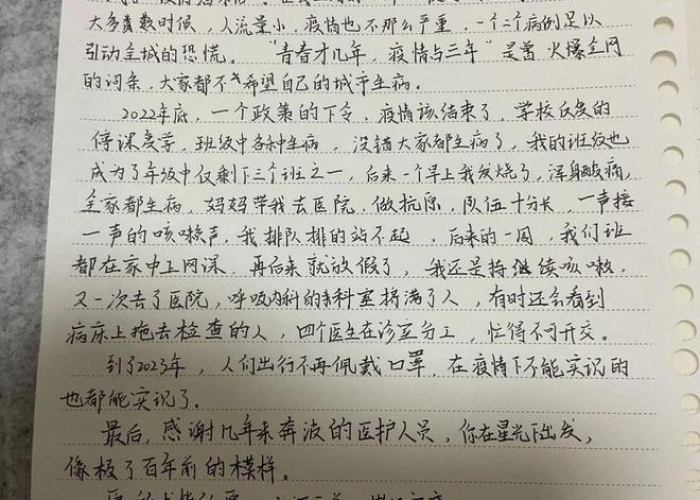 大多喜数时候，人流量小，疫情也不那么严重，一个二个病例足以
引动全城的恐慌。"青春才几年，疫情与三年"是曾火爆全网
的词条，大家都不希望自己的城市生病。
2022年底，一个政策的下令，疫情该结束了，学校反复的
停课复学，班级中各种生病，没错大家都生病了，我的班级也
成为了年级中仅剩下三个班之一，后来一个早上我发烧了，浑身酸痛，
全家都生病，妈妈带我去医院，做抗原，队伍十分长，一声接
一声的咳嗽声，我排队排的站不起，后来的一周，我们班
都在家中上网课，再后来就放假了，我还是持继续咳嗽，
又一次去了医院，呼吸内科的科室挤满了人，有时还会看到
病床上拖去检查的人，四个医生在诊室分工，忙得不可开交。
到了2023年，人们出行不再佩戴口罩，在疫情下不能实识的
也都能实识了。
最后，感谢几年来奔波的医护人员，你在星光下出发，
像极了百年前的模样。